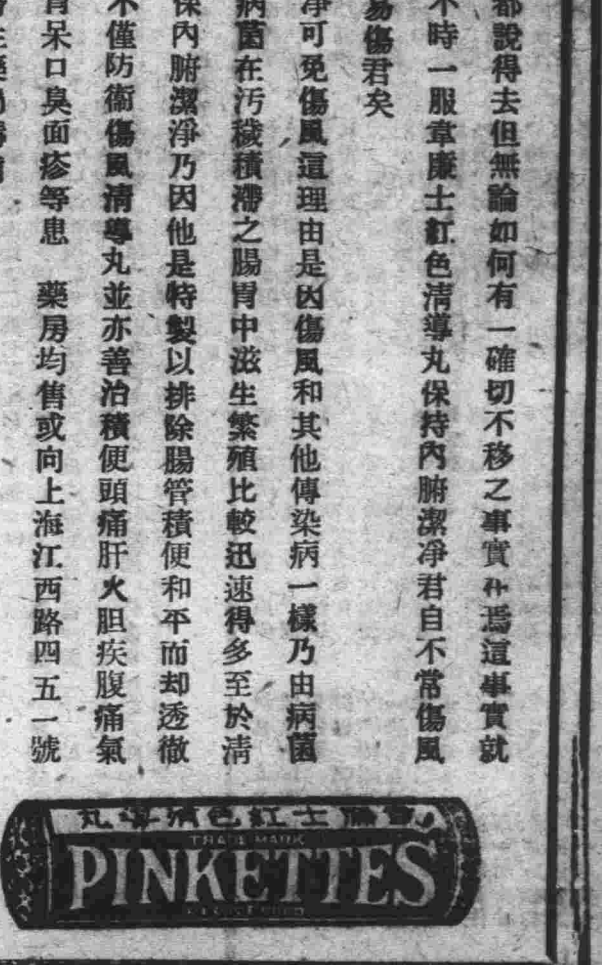 都說得去但無論如何有一確切不移之事實在焉這事實就
不時一服韋廉士紅色清導丸保持內腑潔淨君自不常傷風
易傷君矣
淨可免傷風這理由是因傷風和其他傳染病一樣乃由病菌
病菌在汚穢積滯之腸胃中滋生繁殖比較迅速得多至於淸
保內腑潔淨乃因他是特製以排除腸管積便和平而却透徹
不僅防衞傷風淸導丸並亦善治積便頭痛肝火胆疾腹痛氣
胃呆口臭面疹等患 藥房均售或向上海江西路四五一號
韋廉士紅色清導丸
TRADE MARK
PINKETTES